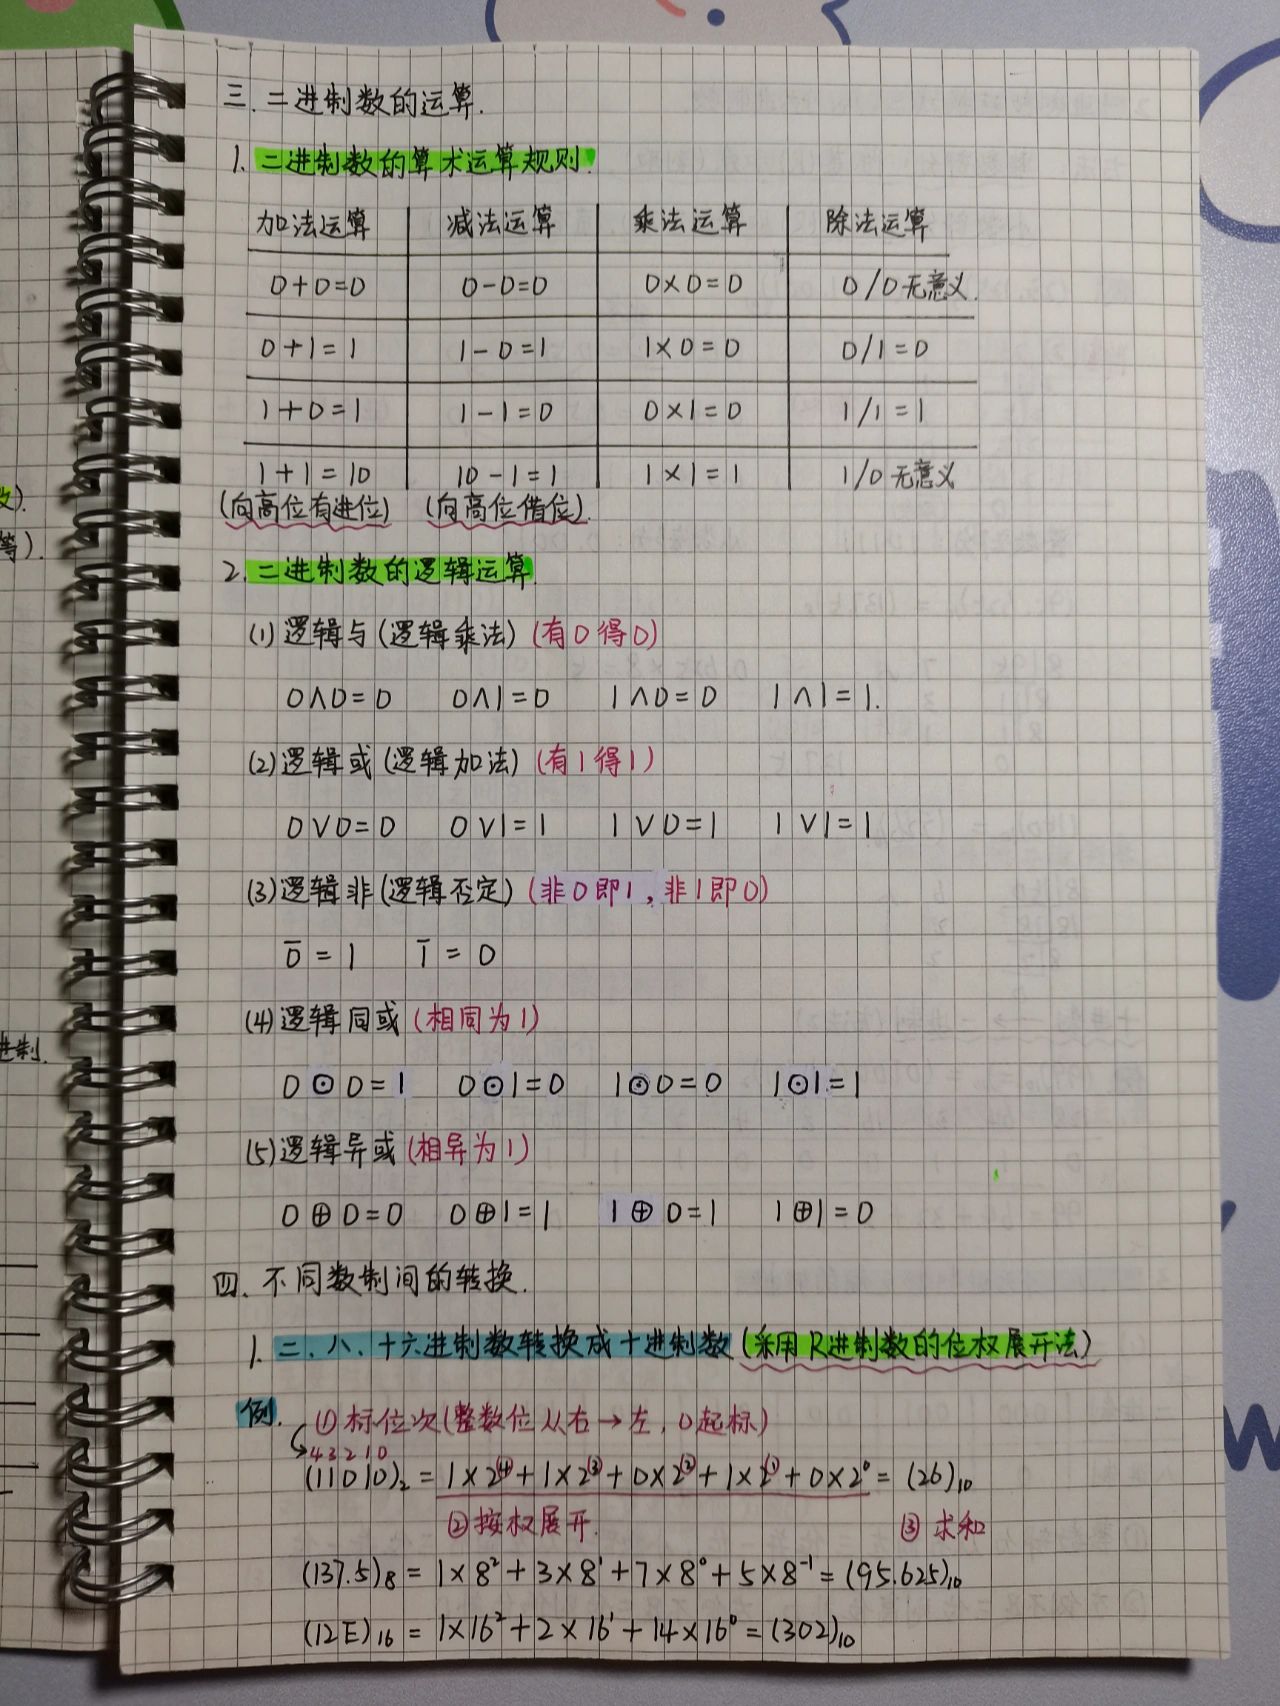 三.二进制数的运算.
1.二进制数的算术运算规则.
加法运算 减法运算 乘法运算 除法运算
0+0=0 0-0=0 0×0=0 0/0无意义.
0+1=1 1-0=1 1×0=0 0/1=0
1+0=1 1-1=0 0×1=0 1/1=1
1+1=10 10-1=1 1×1=1 1/0无意义
(向高位有进位) (向高位借位).
2.二进制数的逻辑运算.
(1)逻辑与(逻辑乘法)(有0得0)
0∧0=0 0∧1=0 1∧0=0 1∧1=1.
(2)逻辑或(逻辑加法)(有1得1)
0∨0=0 0∨1=1 1∨0=1 1∨1=1
(3)逻辑非(逻辑否定)(非0即1,非1即0)
0̅=1 1̅=0
(4)逻辑同或(相同为1)
0⊙0=1 0⊙1=0 1⊙0=0 1⊙1=1
(5)逻辑异或(相异为1)
0⊕0=0 0⊕1=1 1⊕0=1 1⊕1=0
四.不同数制间的转换.
1.二、八、十六进制数转换成十进制数(采用R进制数的位权展开法)
例. ①标位次(整数位从右→左,0起标)
4 3 2 1 0
(11010)₂=1×2⁴+1×2³+0×2²+1×2¹+0×2⁰=(26)₁₀
②按权展开. ③求和
(137.5)₈=1×8²+3×8¹+7×8⁰+5×8⁻¹=(95.625)₁₀
(12E)₁₆=1×16²+2×16¹+14×16⁰=(302)₁₀